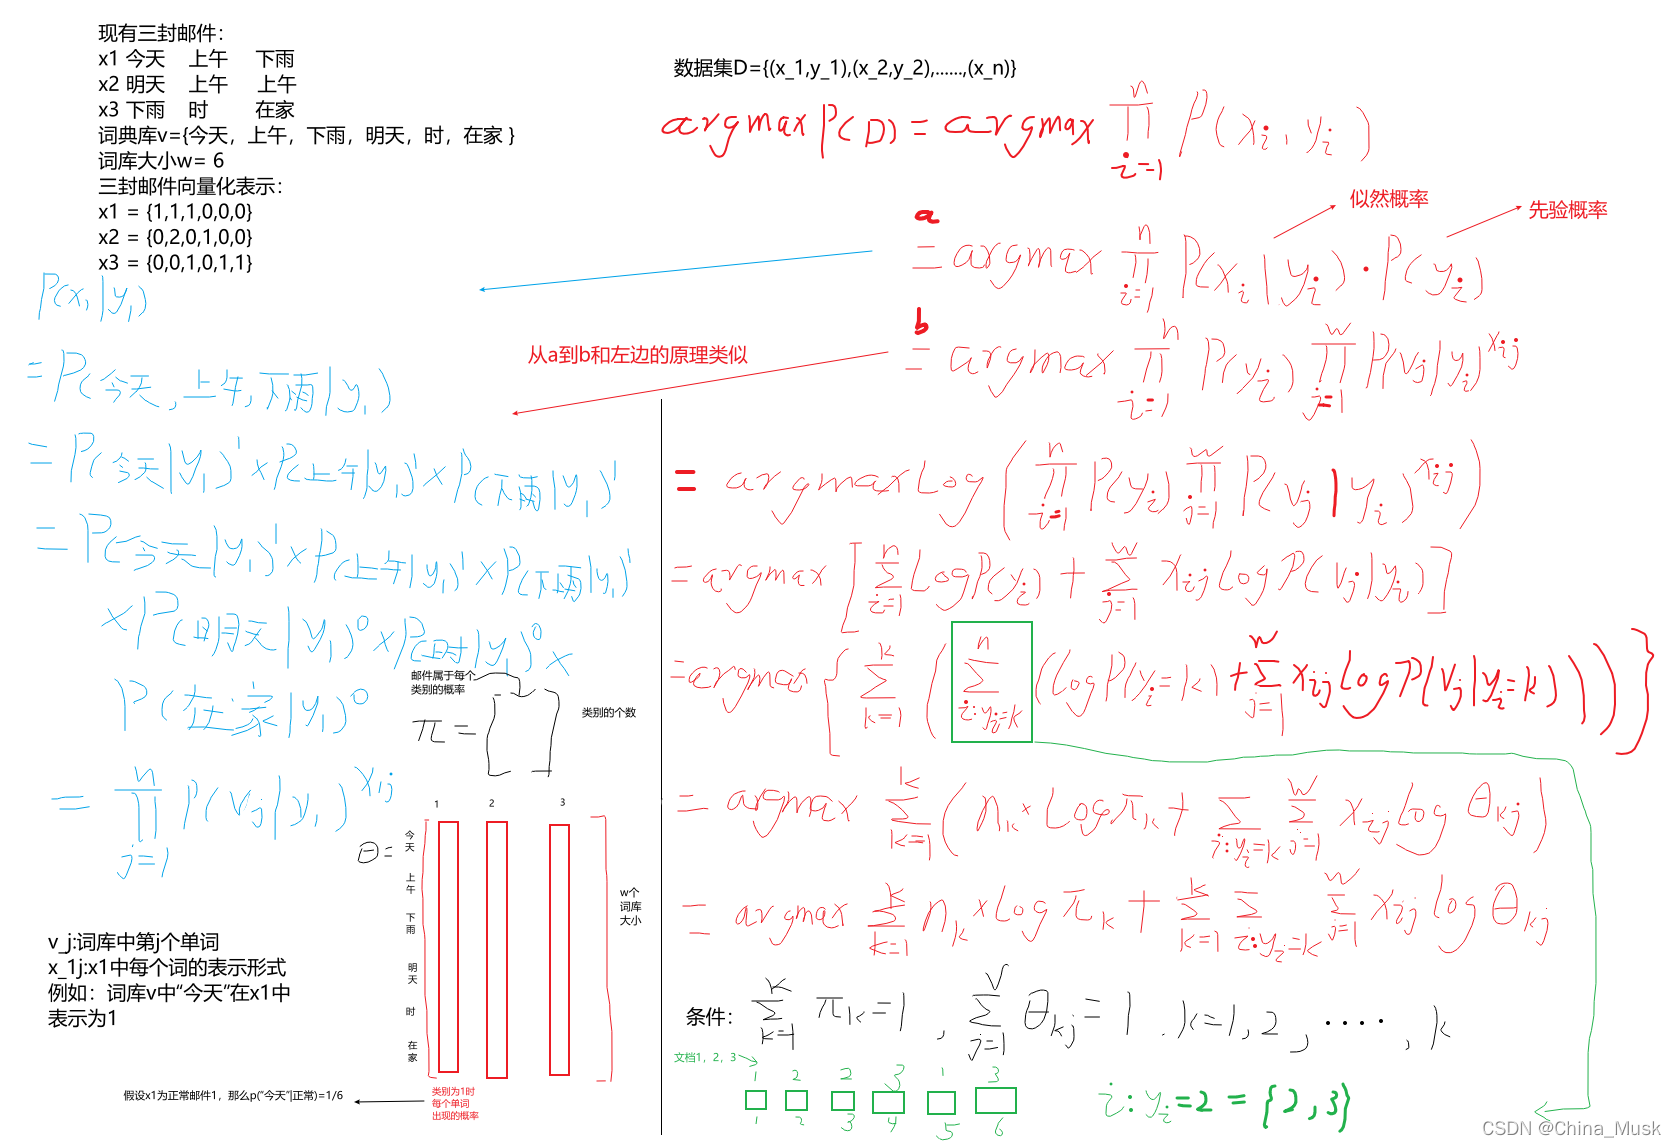 现有三封邮件：
x1 今天 上午 下雨
x2 明天 上午 上午
x3 下雨 时 在家
词典库v={今天，上午，下雨，明天，时，在家 }
词库大小w= 6
三封邮件向量化表示：
x1 = {1,1,1,0,0,0}
x2 = {0,2,0,1,0,0}
x3 = {0,0,1,0,1,1}
P(x₁|y₁)
= P(今天,上午,下雨|y₁)
= P(今天|y₁)¹×P(上午|y₁)¹×P(下雨|y₁)¹
= P(今天|y₁)¹×P(上午|y₁)¹×P(下雨|y₁)¹
×P(明天|y₁)⁰×P(时|y₁)⁰×
P(在家|y₁)⁰
= ∏_{j=1}^{n} P(v_j|y₁)^{x_{1j}}
邮件属于每个
类别的概率
π =
类别的个数
1 2 3
θ=
今天
上午
下雨
明天
时
在家
w个
词库
大小
v_j:词库中第j个单词
x_1j:x1中每个词的表示形式
例如：词库v中“今天”在x1中
表示为1
假设x1为正常邮件1，那么p(“今天”|正常)=1/6
类别为1时
每个单词
出现的概率
数据集D={(x_1,y_1),(x_2,y_2),......,(x_n)}
argmax P(D) = argmax ∏_{i=1}^{n} P(x_i, y_i)
似然概率
先验概率
a
= argmax ∏_{i=1}^{n} P(x_i|y_i)·P(y_i)
b
从a到b和左边的原理类似
= argmax ∏_{i=1}^{n} P(y_i) ∏_{j=1}^{w} P(v_j|y_i)^{x_{ij}}
= argmax Log(∏_{i=1}^{n} P(y_i) ∏_{j=1}^{w} P(v_j|y_i)^{x_{ij}})
= argmax [∑_{i=1}^{n} Log P(y_i) + ∑_{j=1}^{w} x_{ij} Log P(v_j|y_i)]
= argmax {∑_{k=1}^{k} (∑_{i:y_i=k}^{n} (Log P(y_i=k) + ∑_{j=1}^{w} x_{ij} Log P(v_j|y_i=k)))}
= argmax ∑_{k=1}^{k} (n_k × Log π_k + ∑_{i:y_i=k} ∑_{j=1}^{w} x_{ij} Log θ_{kj})
= argmax ∑_{k=1}^{k} n_k × Log π_k + ∑_{k=1}^{k} ∑_{i:y_i=k} ∑_{j=1}^{w} x_{ij} log θ_{kj}
条件： ∑_{k=1}^{k} π_k = 1 , ∑_{j=1}^{V} θ_{kj} = 1 . k=1,2, ····, k
文档1，2，3
1 2 2 3 1 3
1 2 3 4 5 6
i: y_i=2 = {2,3}
CSDN @China_Musk